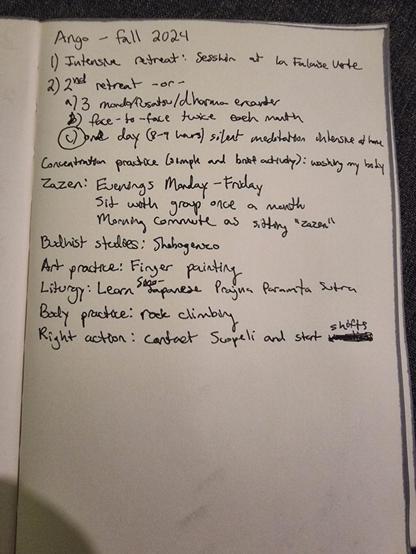 Ango - Fall 2024
1) Intensive retreat: Sesshin at La Falaise Verte
2) 2nd retreat -or-
a) 3 mondo/Fusatsu/dharma encounter
b) face-to-face twice each month
c) one day (8-9 hours) silent meditation intensive at home
Concentration practice (simple and brief activity): washing my body
Zazen: Evenings Monday - Friday
Sit with group once a month
Morning commute as sitting "zazen"
Budhist studies: Shobogenzo
Art practice: Finger painting
Liturgy: Learn Sino-Japanese Prajna Paramita Sutra
Body practice: rock climbing
Right action: contact and start shifts